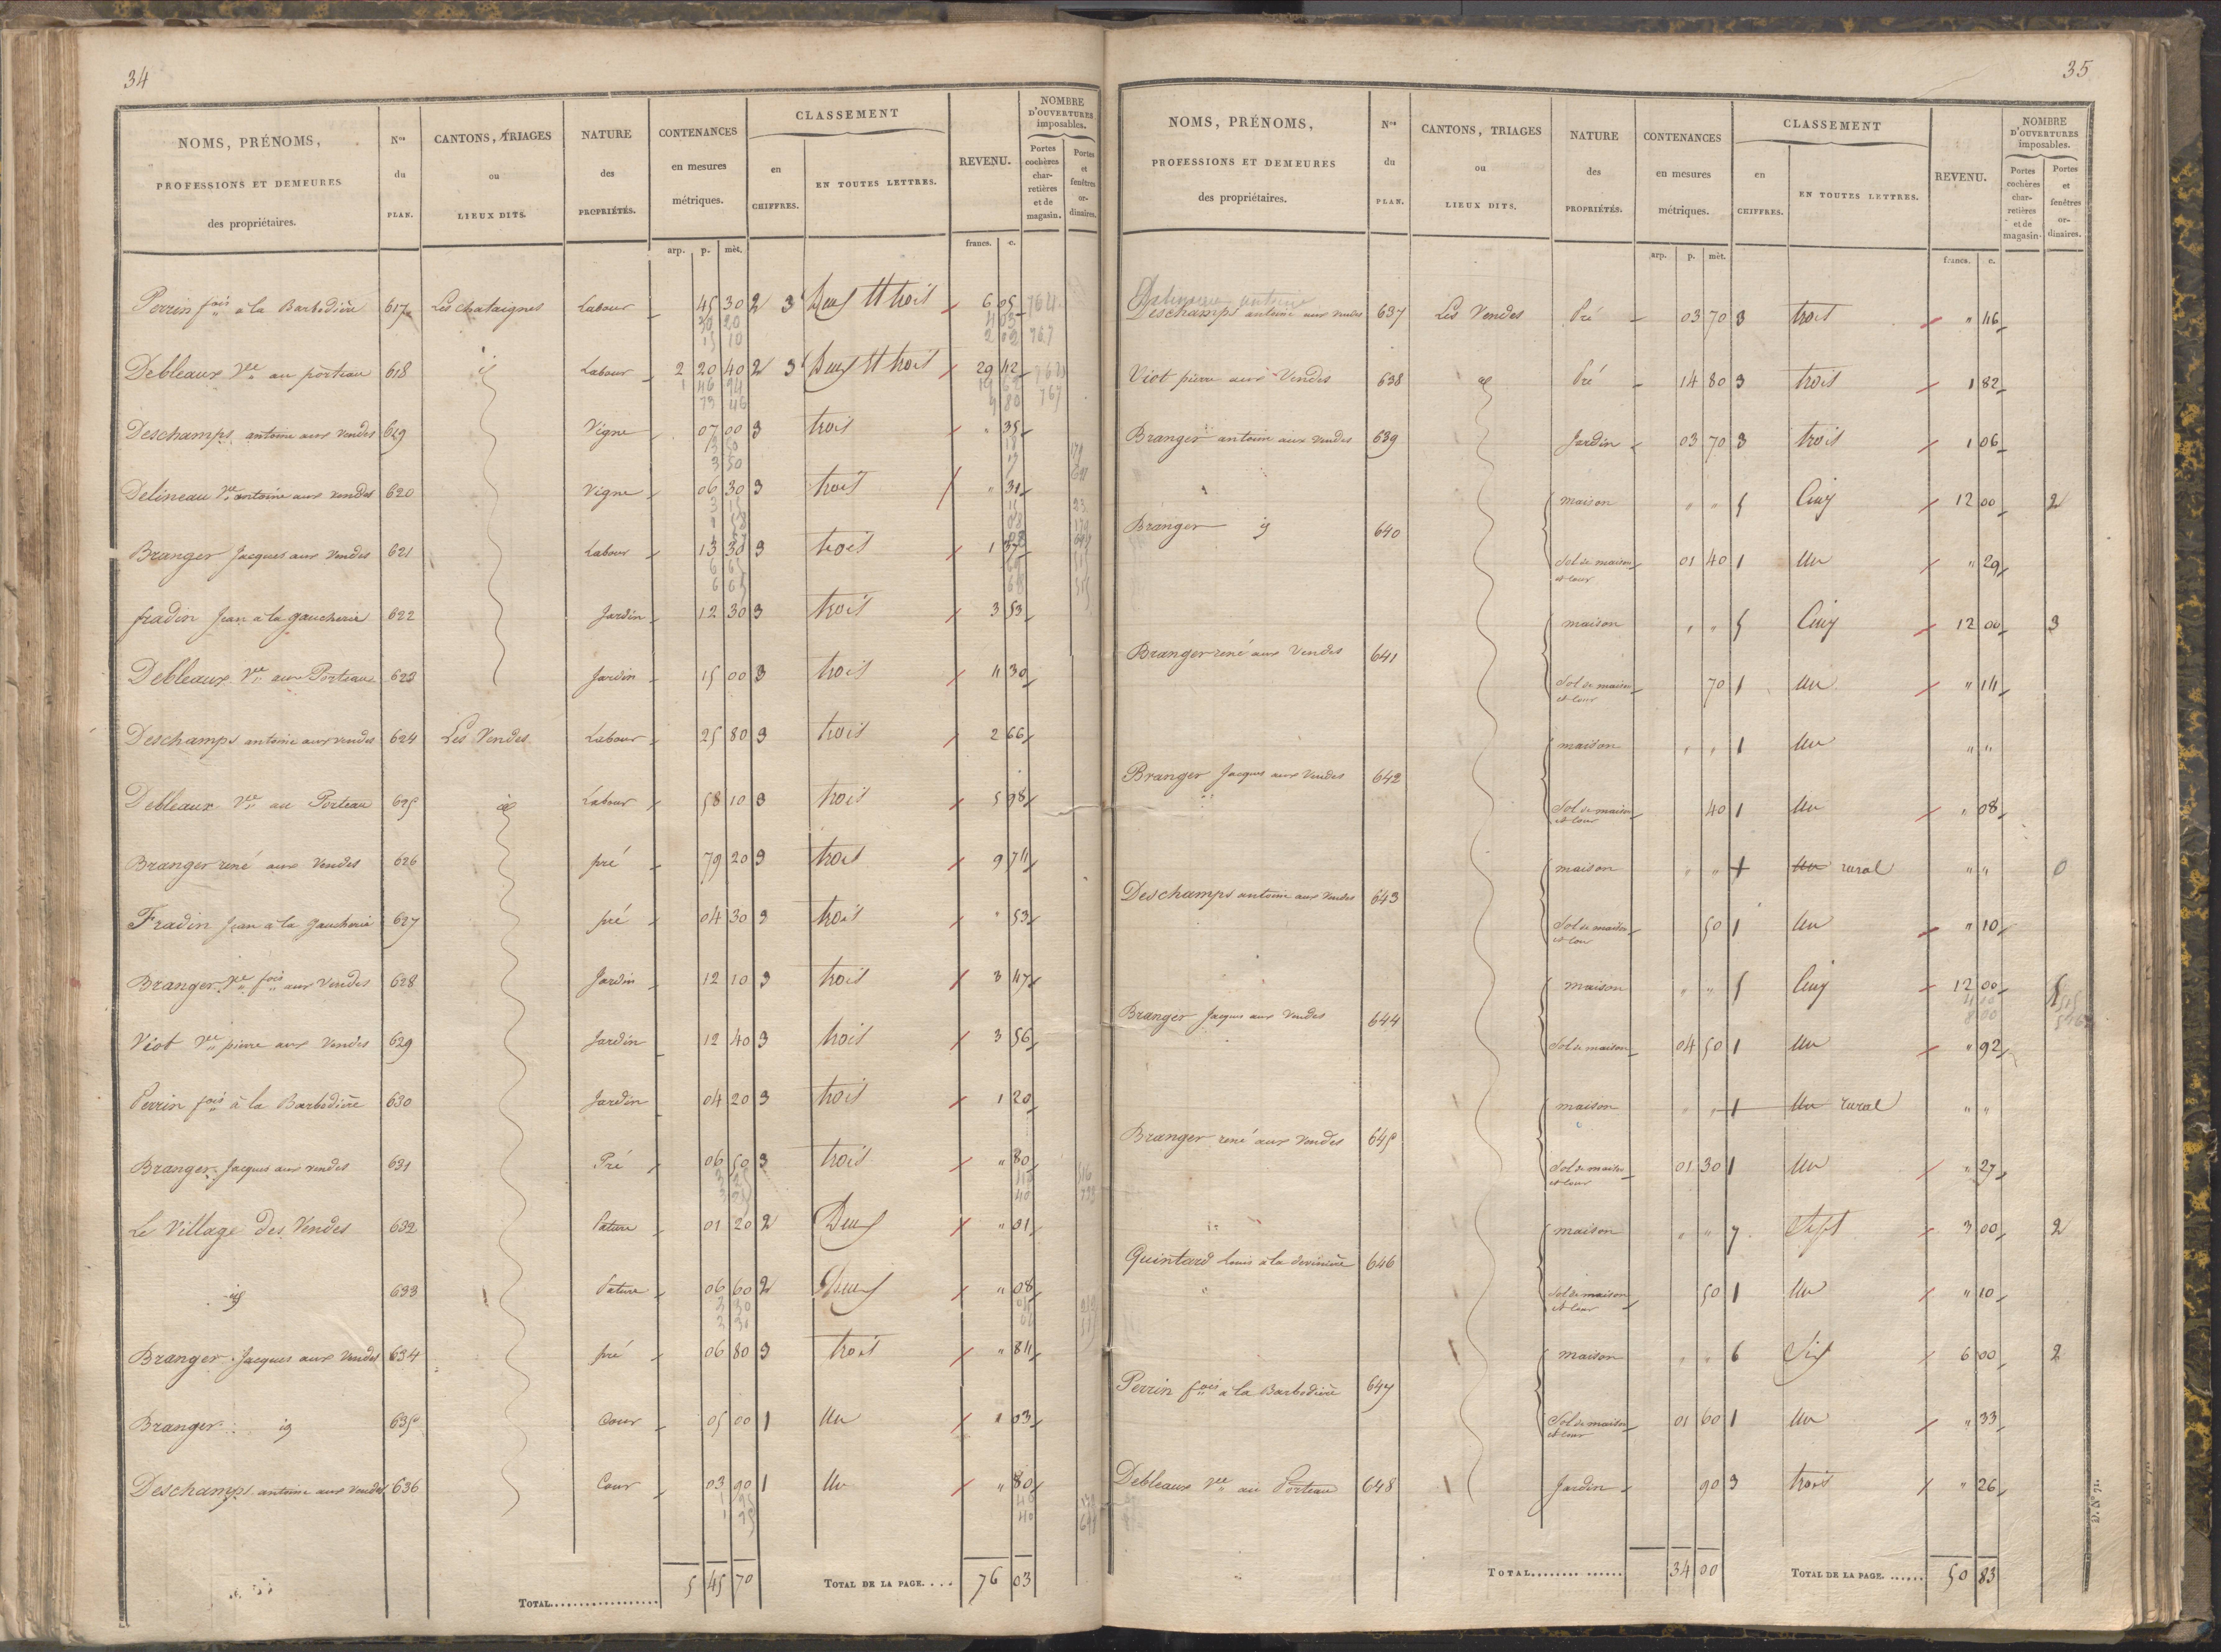 34
NOMS, PRÉNOMS, PROFESSIONS ET DEMEURES des propriétaires. | Nos du PLAN. | CANTONS, TRIAGES ou LIEUX DITS. | NATURE des PROPRIÉTÉS. | CONTENANCES en mesures métriques. | CLASSEMENT en CHIFFRES. | EN TOUTES LETTRES. | REVENU. | NOMBRE D'OUVERTURES imposables. Portes cochères charretières et de magasin. | Portes et fenêtres ordinaires.
arp. p. mèt. francs. c.
Perrin fois à la Barbodière 617 Les Chataignes Labour 45 30 2 3 Deux et trois 6 05
30 20 4 03 764
15 10 2 02 767
Debleaux Vee au porteau 618 id Labour 2 20 40 2 3 Deux et trois 29 42
1 46 94 19 62
73 46 9 80 767
Deschamps antoine aux Vendes 619 Vigne 07 00 3 trois " 35
3 50 18
3 50 17
Delineau Vee antoine aux Vendes 620 Vigne 06 30 3 trois " 31
3 15
Branger Jacques aux Vendes 621 Labour 13 30 3 trois 1 37
6 65
6 65
fradin Jean à la gaucherie 622 Jardin 12 30 3 trois 3 53
Debleaux Vee au Porteau 623 Jardin 15 00 3 trois 4 30
Deschamps antoine aux vendes 624 Les Vendes Labour 25 80 3 trois 2 66
Debleaux Vee au Porteau 625 id Labour 58 10 3 trois 5 98
Branger rené aux Vendes 626 pré 79 20 3 trois 9 74
Fradin Jean à la gaucherie 627 pré 04 30 3 trois " 53
Branger Ve fois aux Vendes 628 Jardin 12 10 3 trois 3 47
Viot Vee pierre aux Vendes 629 Jardin 12 40 3 trois 3 56
Perrin fois à la Barbodière 630 Jardin 04 20 3 trois 1 20
Branger Jacques aux vendes 631 Pré 06 50 3 trois " 80
3 25 40
3 25 40
Le Village des Vendes 632 Pature 01 20 2 Deux " 01
id 633 Pature 06 60 2 Deux " 08
3 30 04
3 30 04
Branger Jacques aux Vendes 634 pré 06 80 3 trois " 84
Branger id 635 Cour 05 00 1 Un 1 03
Deschamps antoine aux Vendes 636 Cour 03 90 1 Un " 80
1 95 40
1 95 40
TOTAL 5 45 70 TOTAL DE LA PAGE 76 03
35
NOMS, PRÉNOMS, PROFESSIONS ET DEMEURES des propriétaires. | Nos du PLAN. | CANTONS, TRIAGES ou LIEUX DITS. | NATURE des PROPRIÉTÉS. | CONTENANCES en mesures métriques. | CLASSEMENT en CHIFFRES. | EN TOUTES LETTRES. | REVENU. | NOMBRE D'OUVERTURES imposables. Portes cochères charretières et de magasin. | Portes et fenêtres ordinaires.
arp. p. mèt. francs. c.
antoine
Deschamps antoine aux Vendes 637 Les Vendes Pré 03 70 3 trois " 46
Viot pierre aux Vendes 638 id Pré 14 80 3 trois 1 82
Branger antoine aux Vendes 639 Jardin 03 70 3 trois 1 06
maison " " 5 Cinq 12 00 2
Branger id 640
Sol de maison et cour 01 40 1 Un " 29
maison " " 5 Cinq 12 00 3
Branger rené aux Vendes 641
Sol de maison et cour 70 1 Un " 14
maison " " 1 Un " "
Branger Jacques aux Vendes 642
Sol de maison et cour 40 1 Un " 08
maison " " 1 Un rural " " 0
Deschamps antoine aux Vendes 643
Sol de maison et cour 50 1 Un " 10
maison " " 5 Cinq 12 00 5
Branger Jacques aux Vendes 644 4 00
8 00
Sol de maison 04 50 1 Un " 92
maison " " 1 Un rural " "
Branger rené aux Vendes 645
Sol de maison et cour 01 30 1 Un " 27
maison " " 7 Sept 3 00 2
Quintard Louis à la devinière 646
Sol de maison et cour 50 1 Un " 10
maison " " 6 Six 6 00 2
Perrin fois à la Barbodière 647
Sol de maison et cour 01 60 1 Un " 33
Debleaux Vee au Porteau 648 Jardin 90 3 trois " 26
TOTAL 34 00 TOTAL DE LA PAGE 50 83